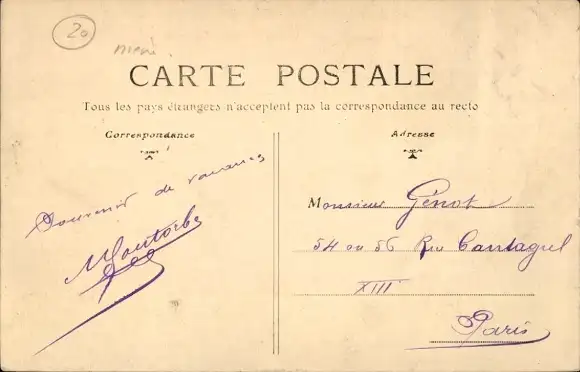 20
CARTE POSTALE
Tous les pays étrangers n'acceptent pas la correspondance au recto
Correspondance
Adresse
Souvenir de vacances
Monsieur Génot
54 ou 56 Rue Cantagrel
XIII
Paris